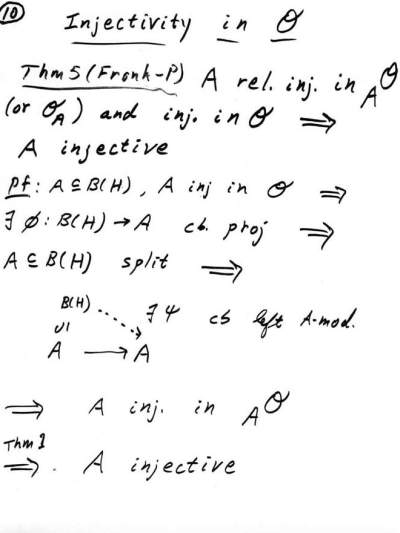 10
Injectivity in O
Thm 5 (Frank-P) A rel. inj. in AO
(or OA) and inj. in O ⇒
A injective
pf: A ⊆ B(H), A inj in O ⇒
∃ φ: B(H) → A cb. proj ⇒
A ⊆ B(H) split ⇒
B(H) ∃ ψ cb left A-mod.
∪|
A → A
⇒ A inj. in AO
Thm 1
⇒. A injective